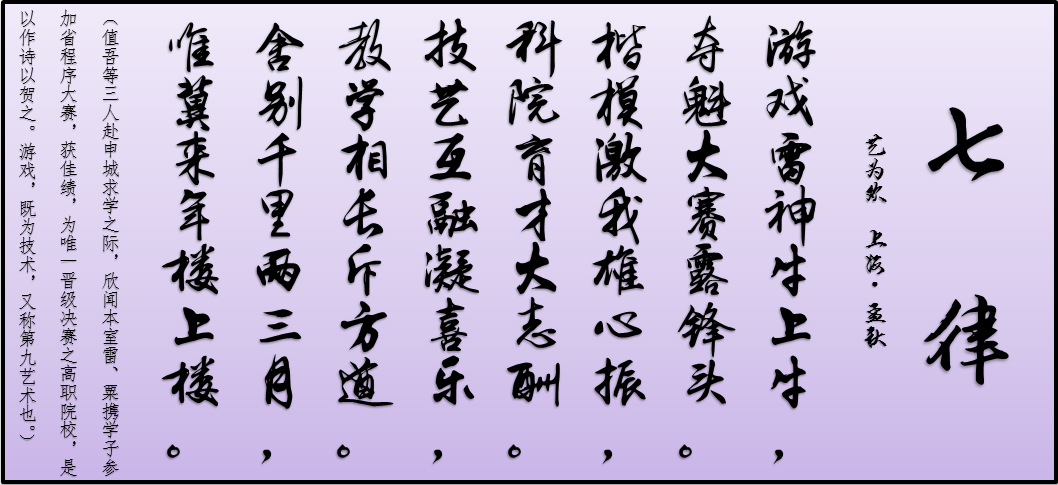 七律
艺为 上海·孟秋
游戏雷神牛上牛，
夺魁大赛露锋头。
楷模激我雄心振，
科院育才大志酬。
技艺互融凝喜乐，
教学相长斥方遒。
舍别千里两三月，
唯冀来年楼上楼。
（值吾等三人赴申城求学之际，欣闻本室雷、粟携学子参
加省程序大赛，获佳绩，为唯一晋级决赛之高职院校，是
以作诗以贺之。游戏，既为技术，又称第九艺术也。）